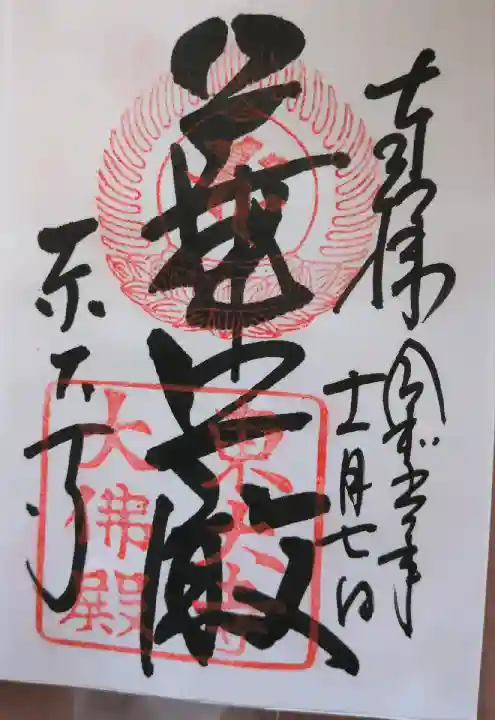 奉拝
令和
十一月七日
華嚴
東大寺
東大寺
大佛殿